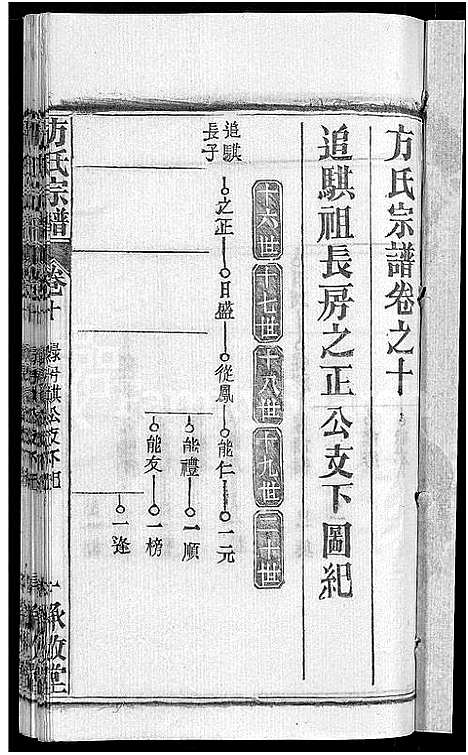 方氏宗譜卷之十
追騏祖長房之正公支下圖紀
十六世 十七世 十八世 十九世 二十世
追騏長子 之正 日盛 從鳳 能仁 一元
能禮 一順
能友 一榜
一逢
方氏宗譜 卷之十 公支下 承敬堂